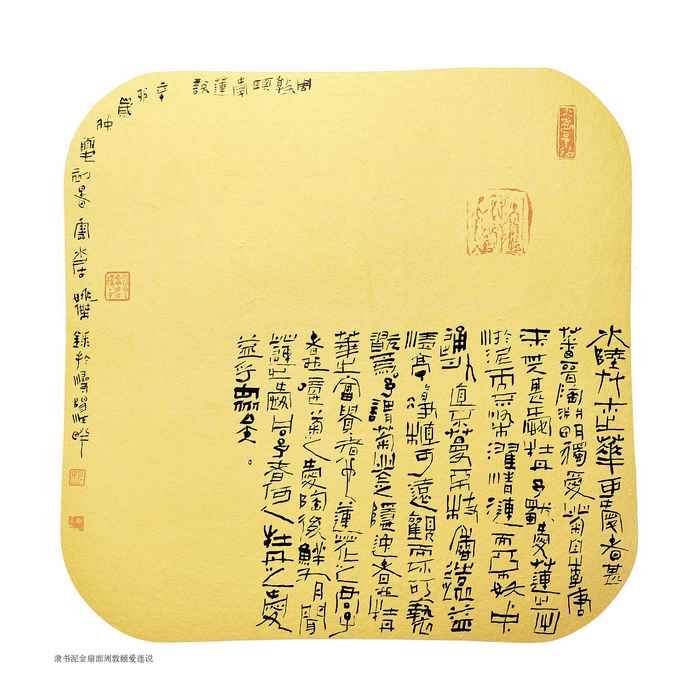 水陸艸木之華可愛者甚
蕃晉陶淵明獨愛菊自李唐
來世人甚愛牡丹予獨愛蓮之出
淤泥而不染濯清漣而不妖中
通外直不蔓不枝香遠益
清亭亭淨植可遠觀而不可褻
翫焉予謂菊花之隱逸者也牡丹
華之富貴者也蓮花之君子
者也噫菊之愛陶後鮮有聞
蓮之愛同予者何人牡丹之愛
宜乎眾矣。
周敦頤愛蓮說 辛卯歲仲
隶书泥金扇面周敦颐爱莲说